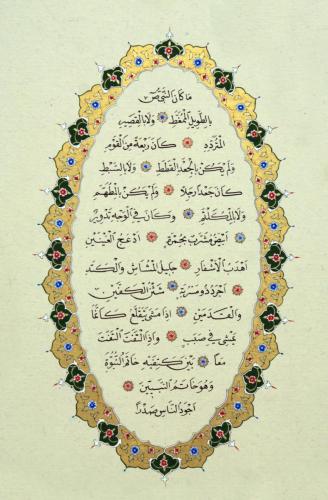 ما كان النبي ﷺ
بالطويل الممغط ولا بالقصير
المتردد كان ربعة من القوم
ولم يكن بالجعد القطط ولا بالسبط
كان جعدا رجلا ولم يكن بالمطهم
ولا بالمكلثم وكان في الوجه تدوير
أبيض مشرب بحمرة أدعج العينين
أهدب الأشفار جليل المشاش والكتد
أجرد ذو مسربة شثن الكفين
والقدمين إذا مشى يتقلع كأنما
يمشي في صبب وإذا التفت التفت
معا بين كتفيه خاتم النبوة
وهو خاتم النبيين
أجود الناس صدرا